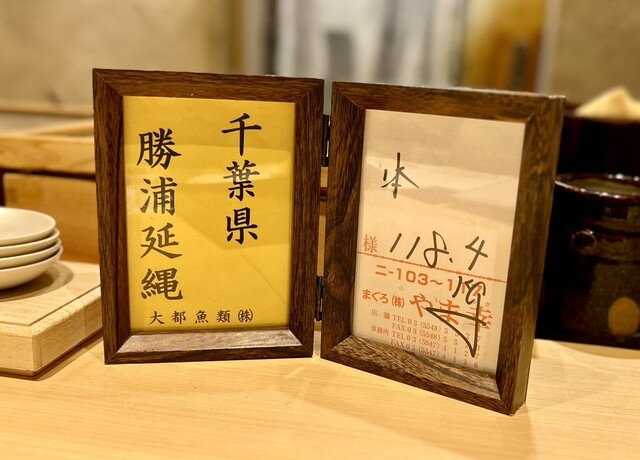 千葉県
勝浦延縄
大都魚類㈱
本
様 118.4
ニ-103~1
まぐろ(株)やま幸
店舗 TEL 03(5548)5
FAX 03(5548)5
事務所 TEL 03(5547)4
FAX 03(5547)4